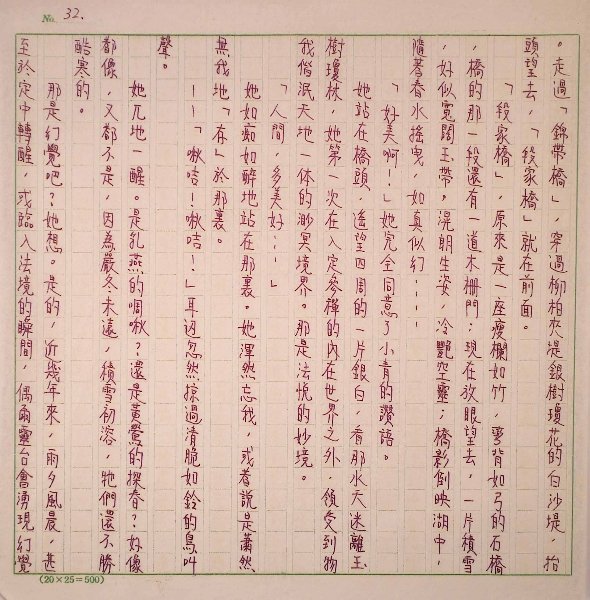 No. 32.
。走過「錦帶橋」，穿過柳柏夾堤銀樹瓊花的白沙堤，抬
頭望去，「段家橋」就在前面。
「段家橋」，原來是一座瘦欄如竹，彎背如弓的石橋
，橋的那一段還有一道木柵門；現在放眼望去，一片積雪
，好似寬闊玉帶。滉朗生姿，冷艷空靈；橋影倒映湖中，
隨著春水搖曳，如真似幻……
「好美啊！」她完全同意了小青的讚語。
她站在橋頭，遙望四周的一片銀白，看那水天迷離玉
樹瓊枝，她第一次在入定參禪的內在世界之外，領受到物
我偕泯天地一体的渺冥境界。那是法悅的妙境。
「人間，多美好……」
她如痴如醉地站在那裏。她渾然忘我，或者說是蕭然
無我地「存」於那裏。
——「啾咭！啾咭！」耳边忽然掠過清脆如鈴的鳥叫
聲。
她兀地一醒。是乳燕的啁啾？還是黃鶯的探春？好像
都像，又都不是，因為嚴冬未遠，積雪初溶，牠們還不勝
酷寒的。
那是幻覺吧？她想。是的，近幾年來，雨夕風晨，甚
至於定中轉醒，或臨入法境的瞬間，偶爾靈台會湧現幻覺
(20×25=500)